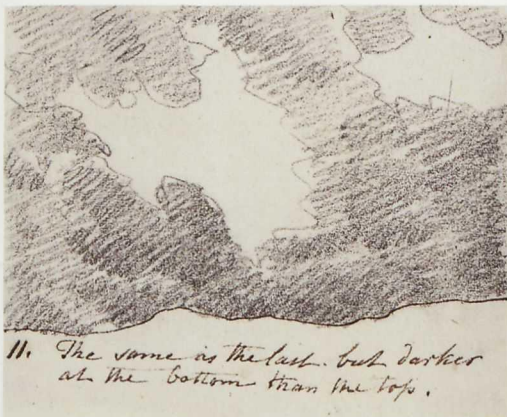 11. The same as the last but darker
at the bottom than the top.